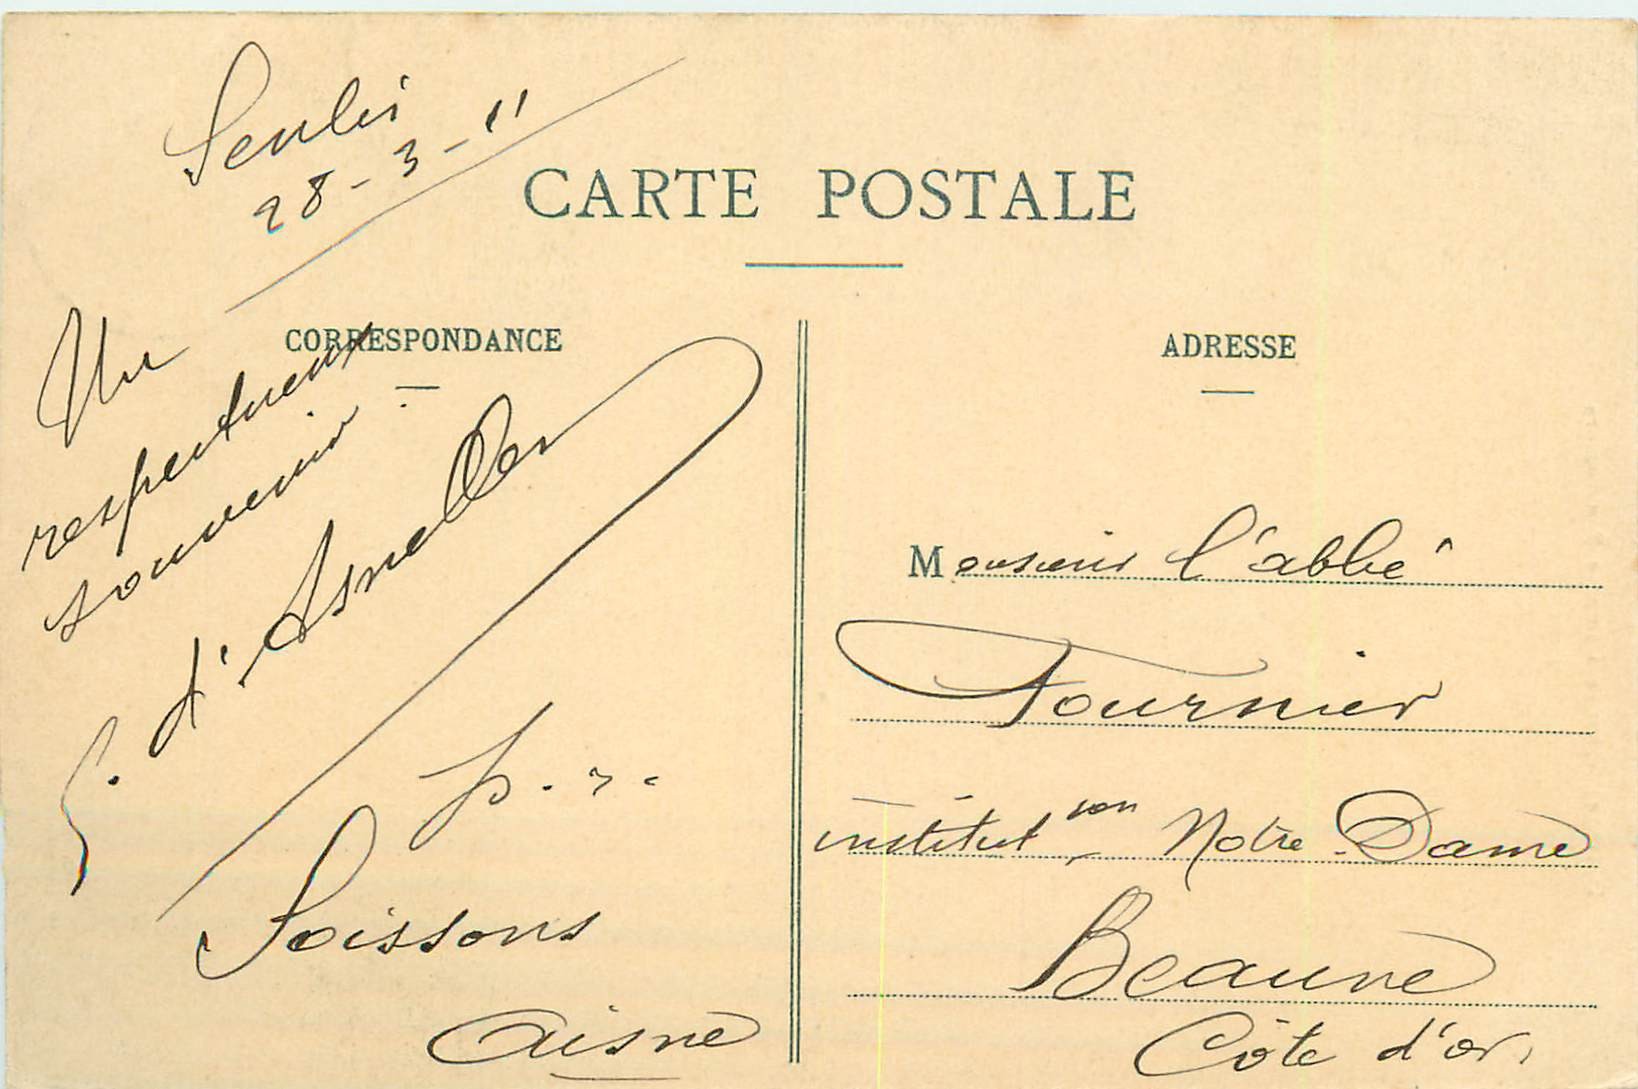 Senlis
28-3-11
CARTE POSTALE
CORRESPONDANCE
Un
respectueux
souvenir
d'Asnelles
p.r.
Soissons
Aisne
ADRESSE
Monsieur l'abbé
Fournier
institut^son Notre Dame
Beaune
Côte d'or